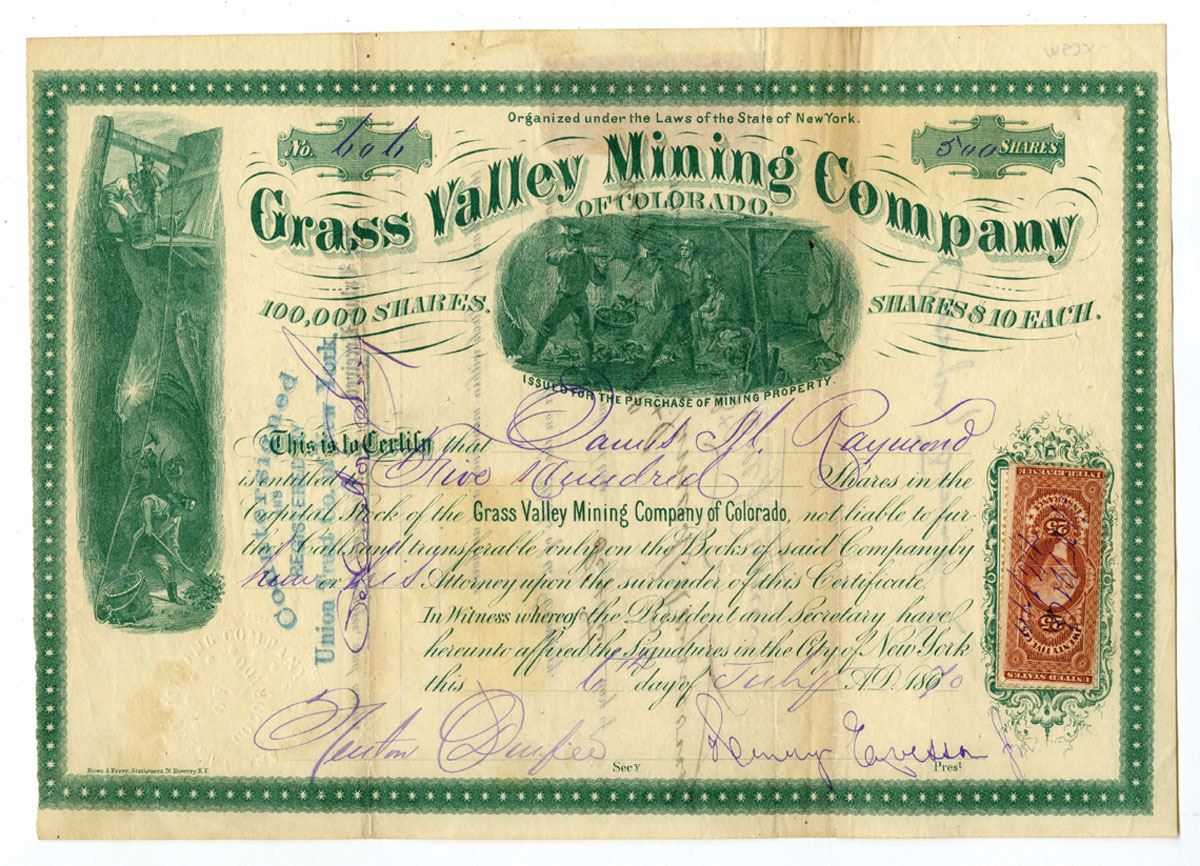 Organized under the Laws of the State of New York.
No. 606
500 SHARES
Grass Valley Mining Company
OF COLORADO.
100,000 SHARES.
SHARES $10 EACH.
ISSUED FOR THE PURCHASE OF MINING PROPERTY.
This is to Certify that Daniel M. Raymond
is entitled to Five Hundred Shares in the
Capital Stock of the Grass Valley Mining Company of Colorado, not liable to fur-
ther Calls and transferable only on the Books of said Company by
him or his Attorney upon the surrender of this Certificate.
In Witness whereof the President and Secretary have
hereunto affixed the Signatures in the City of New York
this 6th day of July A.D. 1870
Newton Secy
Henry Jr Prest
Howe & Ferry, Stationers 76 Bowery N.Y.
Countersigned
REGISTERED
Union Trust Co. of New York.
INTER. REVENUE
25
25
UNITED STATES